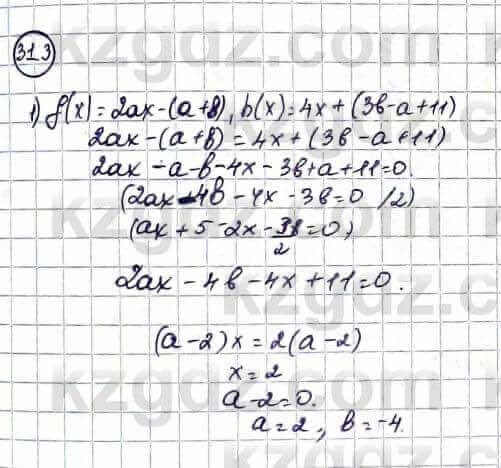 313
1) f(x)=2ax-(a+b), b(x)=4x+(3b-a+11)
2ax-(a+b)=4x+(3b-a+11)
2ax-a-b-4x-3b+a+11=0.
(2ax-4b-4x-3b=0 /2)
(ax+5-2x-3b/2=0)
2ax-4b-4x+11=0.
(a-2)x=2(a-2)
x=2
a-2=0.
a=2, b=-4.
kzgdz.com